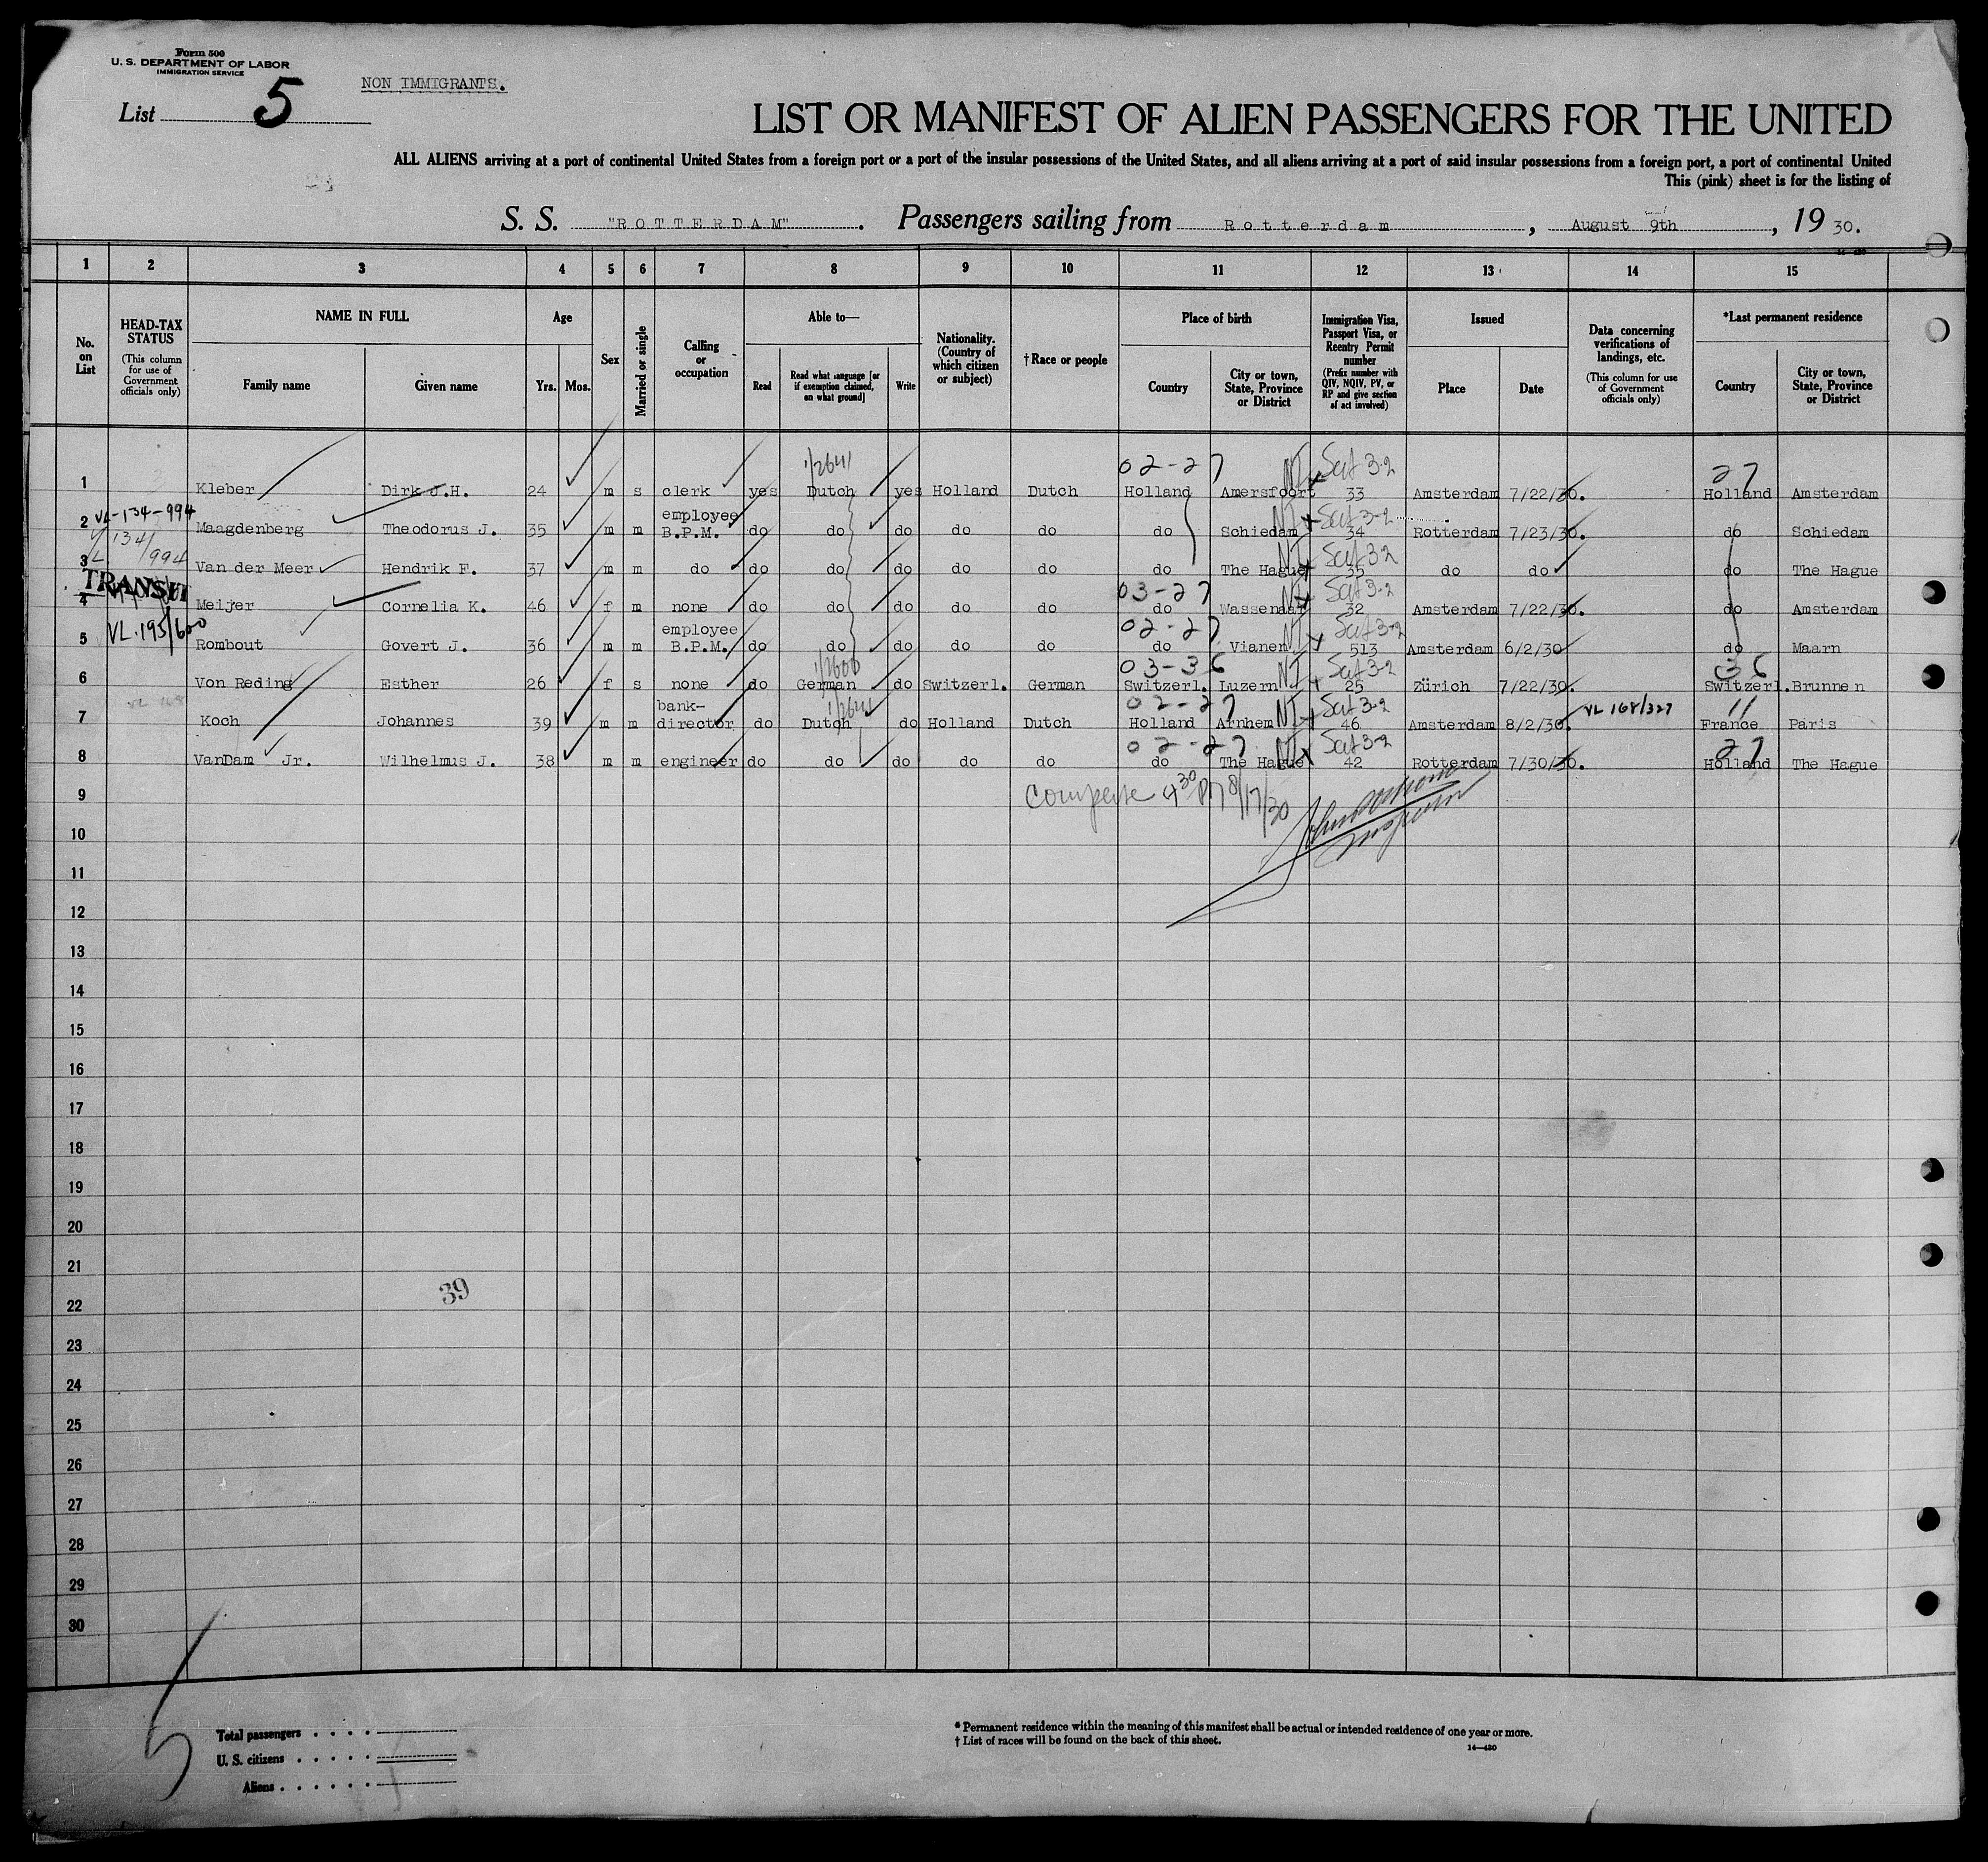 Form 500
U. S. DEPARTMENT OF LABOR
IMMIGRATION SERVICE
NON IMMIGRANTS.
List 5
LIST OR MANIFEST OF ALIEN PASSENGERS FOR THE UNITED
ALL ALIENS arriving at a port of continental United States from a foreign port or a port of the insular possessions of the United States, and all aliens arriving at a port of said insular possessions from a foreign port, a port of continental United
This (pink) sheet is for the listing of
S. S. "ROTTERDAM". Passengers sailing from Rotterdam, August 9th, 19 30.
1 2 3 4 5 6 7 8 9 10 11 12 13 14 15
No. on List
HEAD-TAX STATUS
(This column for use of Government officials only)
NAME IN FULL
Family name Given name
Age
Yrs. Mos.
Sex
Married or single
Calling or occupation
Able to—
Read
Read what language [or if exemption claimed, on what ground]
Write
Nationality. (Country of which citizen or subject)
†Race or people
Place of birth
Country
City or town, State, Province or District
Immigration Visa, Passport Visa, or Reentry Permit number
(Prefix number with QIV, NQIV, PV, or RP and give section of act involved)
Issued
Place Date
Data concerning verifications of landings, etc.
(This column for use of Government officials only)
*Last permanent residence
Country
City or town, State, Province or District
1/2641 02-27 NI Sat 3-2 27
1 Kleber Dirk J.H. 24 m s clerk yes Dutch yes Holland Dutch Holland Amersfoort 33 Amsterdam 7/22/30. Holland Amsterdam
VL-134-994 employee NI Sat 3-2
2 Maagdenberg Theodorus J. 35 m m B.P.M. do do do do do do Schiedam 34 Rotterdam 7/23/30. do Schiedam
134/994 NI Sat 3-2
3 Van der Meer Hendrik F. 37 m m do do do do do do do The Hague 35 do do do The Hague
TRANSIT 03-27 Sat 3-2
4 Meijer Cornelia K. 46 f m none do do do do do do Wassenaar 32 Amsterdam 7/22/30. do Amsterdam
VL.195/600 employee 02-27 NI Sat 3-2
5 Rombout Govert J. 36 m m B.P.M. do do do do do do Vianen 513 Amsterdam 6/2/30 do Maarn
1/2600 03-36 NI Sat 3-2 36
6 Von Reding Esther 26 f s none do German do Switzerl. German Switzerl. Luzern 25 Zürich 7/22/30. Switzerl. Brunnen
bank- 1/2641 02-27 NI Sat 3-2 VL 168/327 11
7 Koch Johannes 39 m m director do Dutch do Holland Dutch Holland Arnhem 46 Amsterdam 8/2/30. France Paris
02-27 NI Sat 3-2 27
8 VanDam Jr. Wilhelmus J. 38 m m engineer do do do do do do The Hague 42 Rotterdam 7/30/30. Holland The Hague
9
4 30 PM 8/17/30
10
11
12
13
14
15
16
17
18
19
20
21
39
22
23
24
25
26
27
28
29
30
5
Total passengers
U. S. citizens
Aliens
* Permanent residence within the meaning of this manifest shall be actual or intended residence of one year or more.
† List of races will be found on the back of this sheet.
14—430